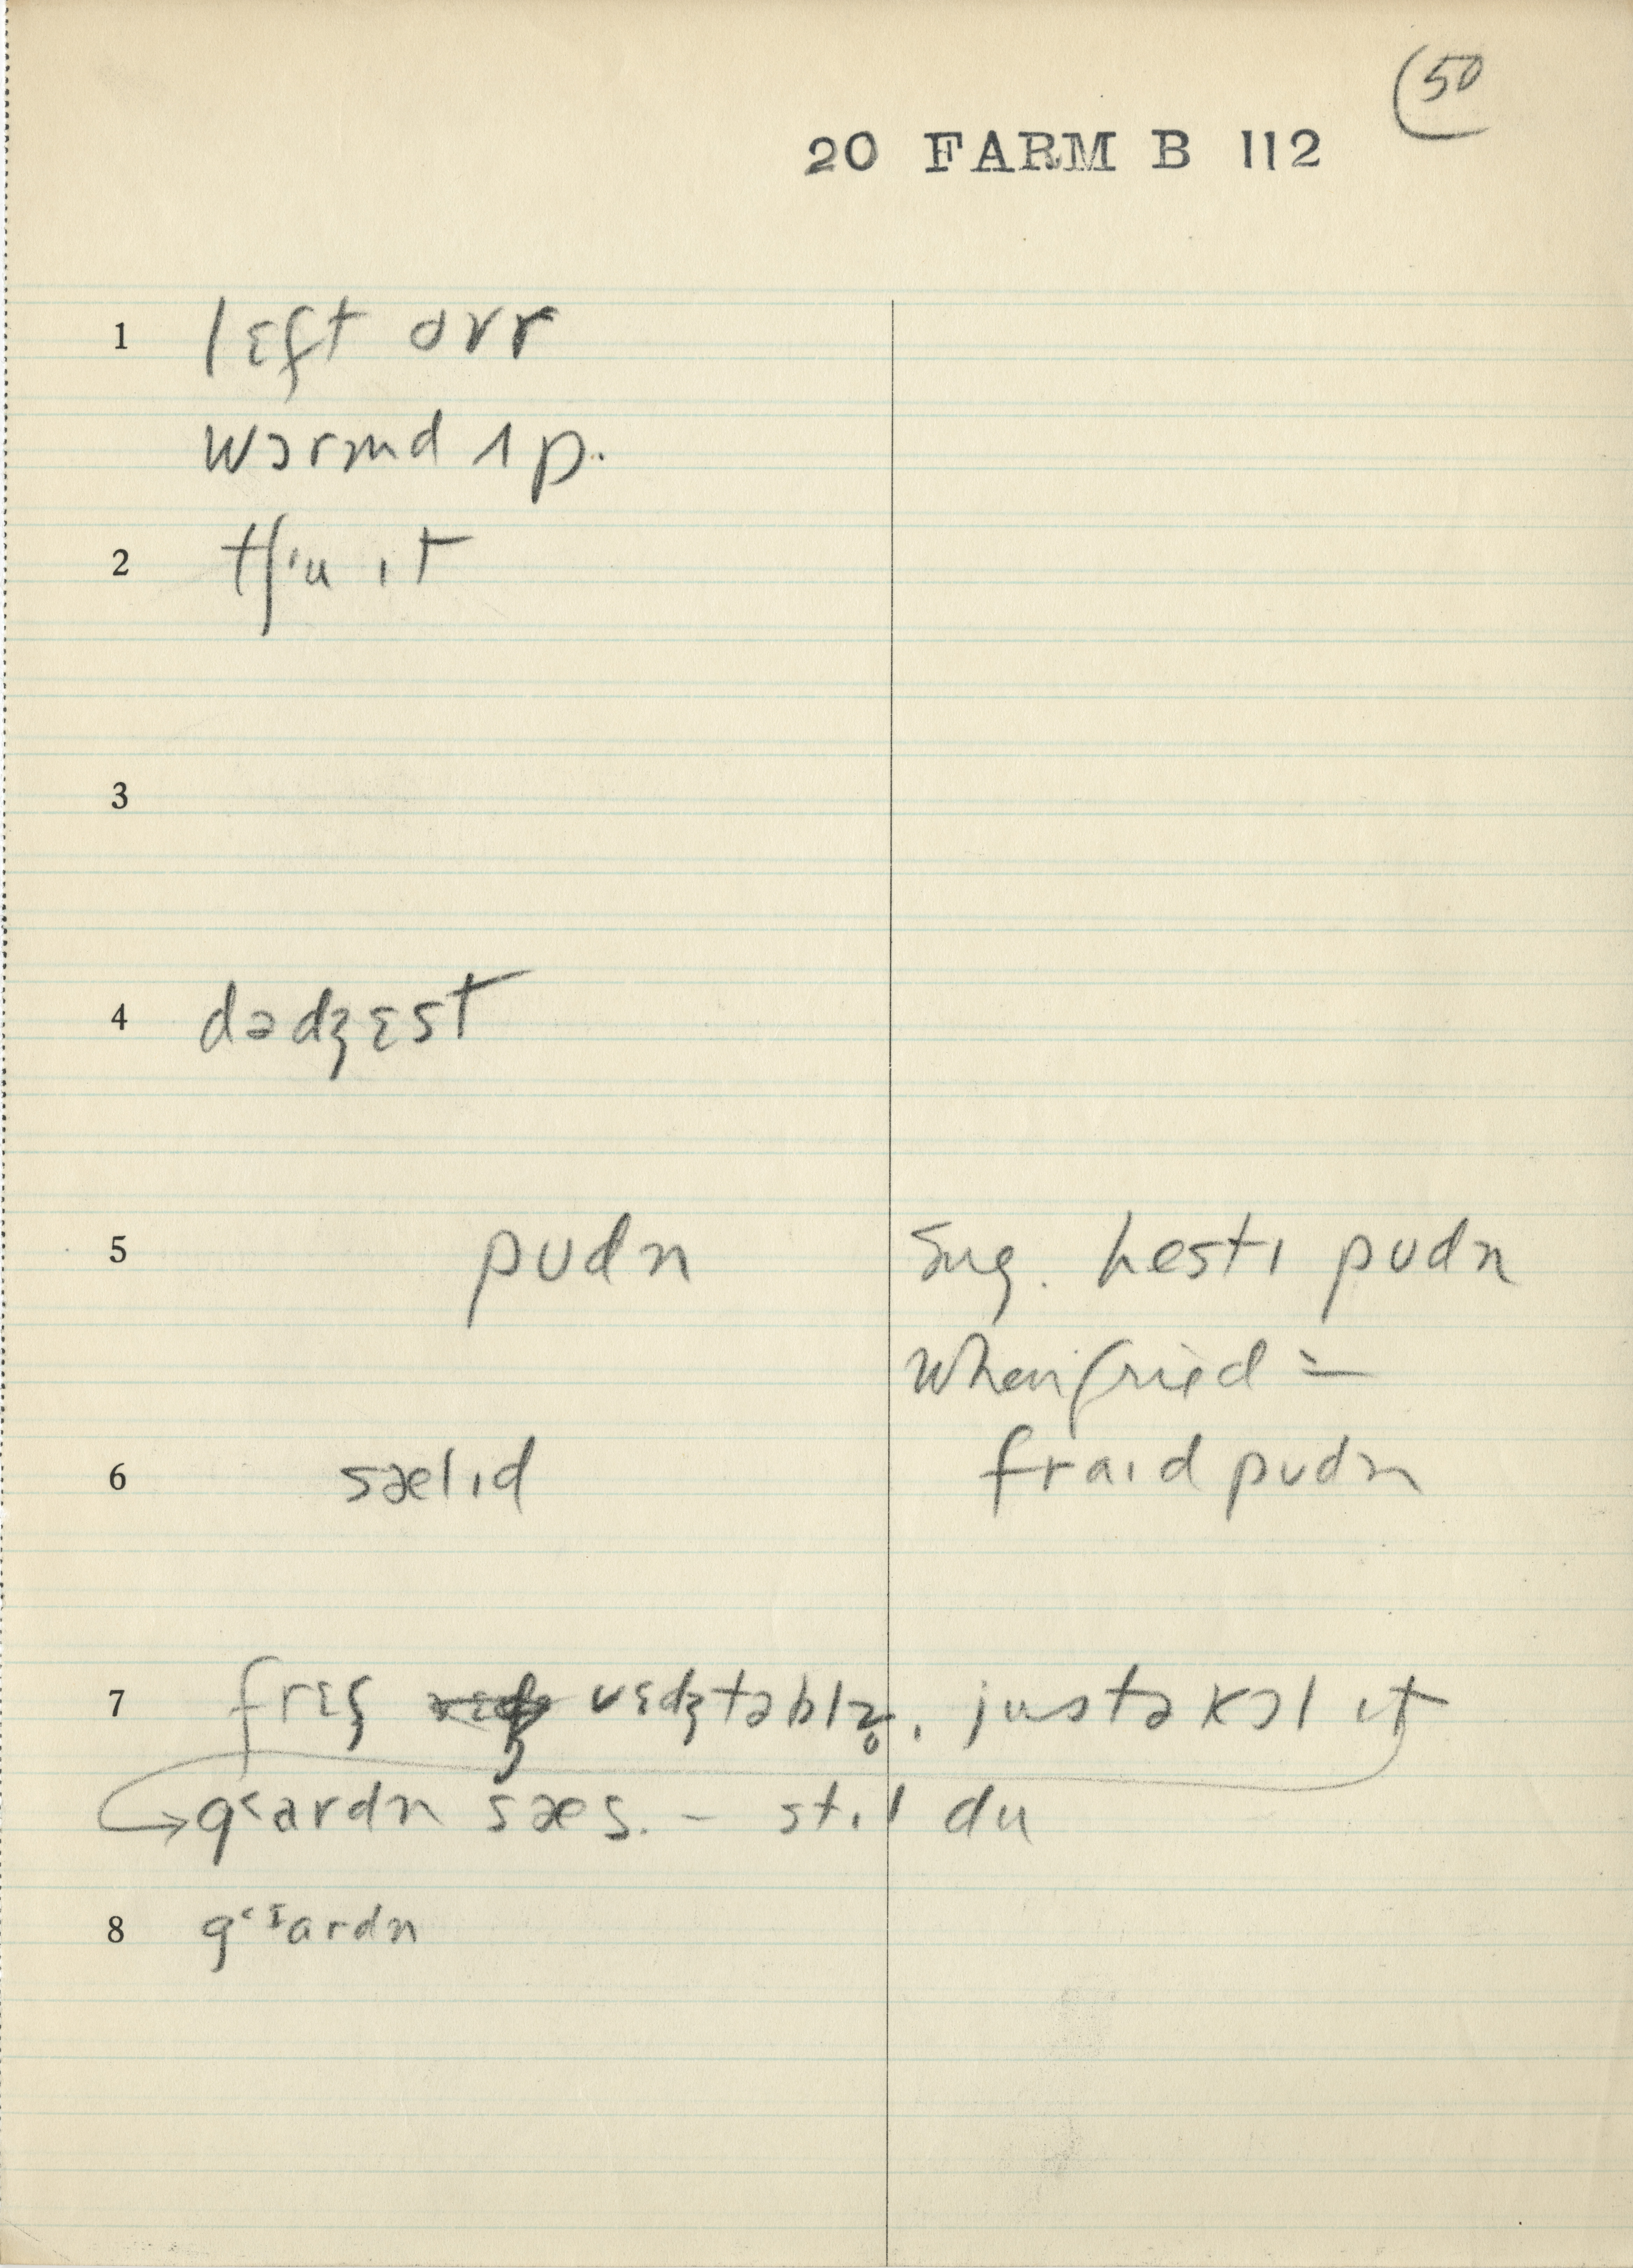 (50
20 FARM B 112
1 lɛft ovr
wɔrmd ʌp.
2 tʃ'u ɪt
3
4 dədʒɛst
5 pʊdn Sug. hestɪ pʊdn
when fried =
6 sælɪd fraɪd pʊdn
7 frɛʃ vɛdʒtəblz̥. justə kɔl ɪt
→ g˂ardn sæs. – stɪl du
8 g˂ɪardn